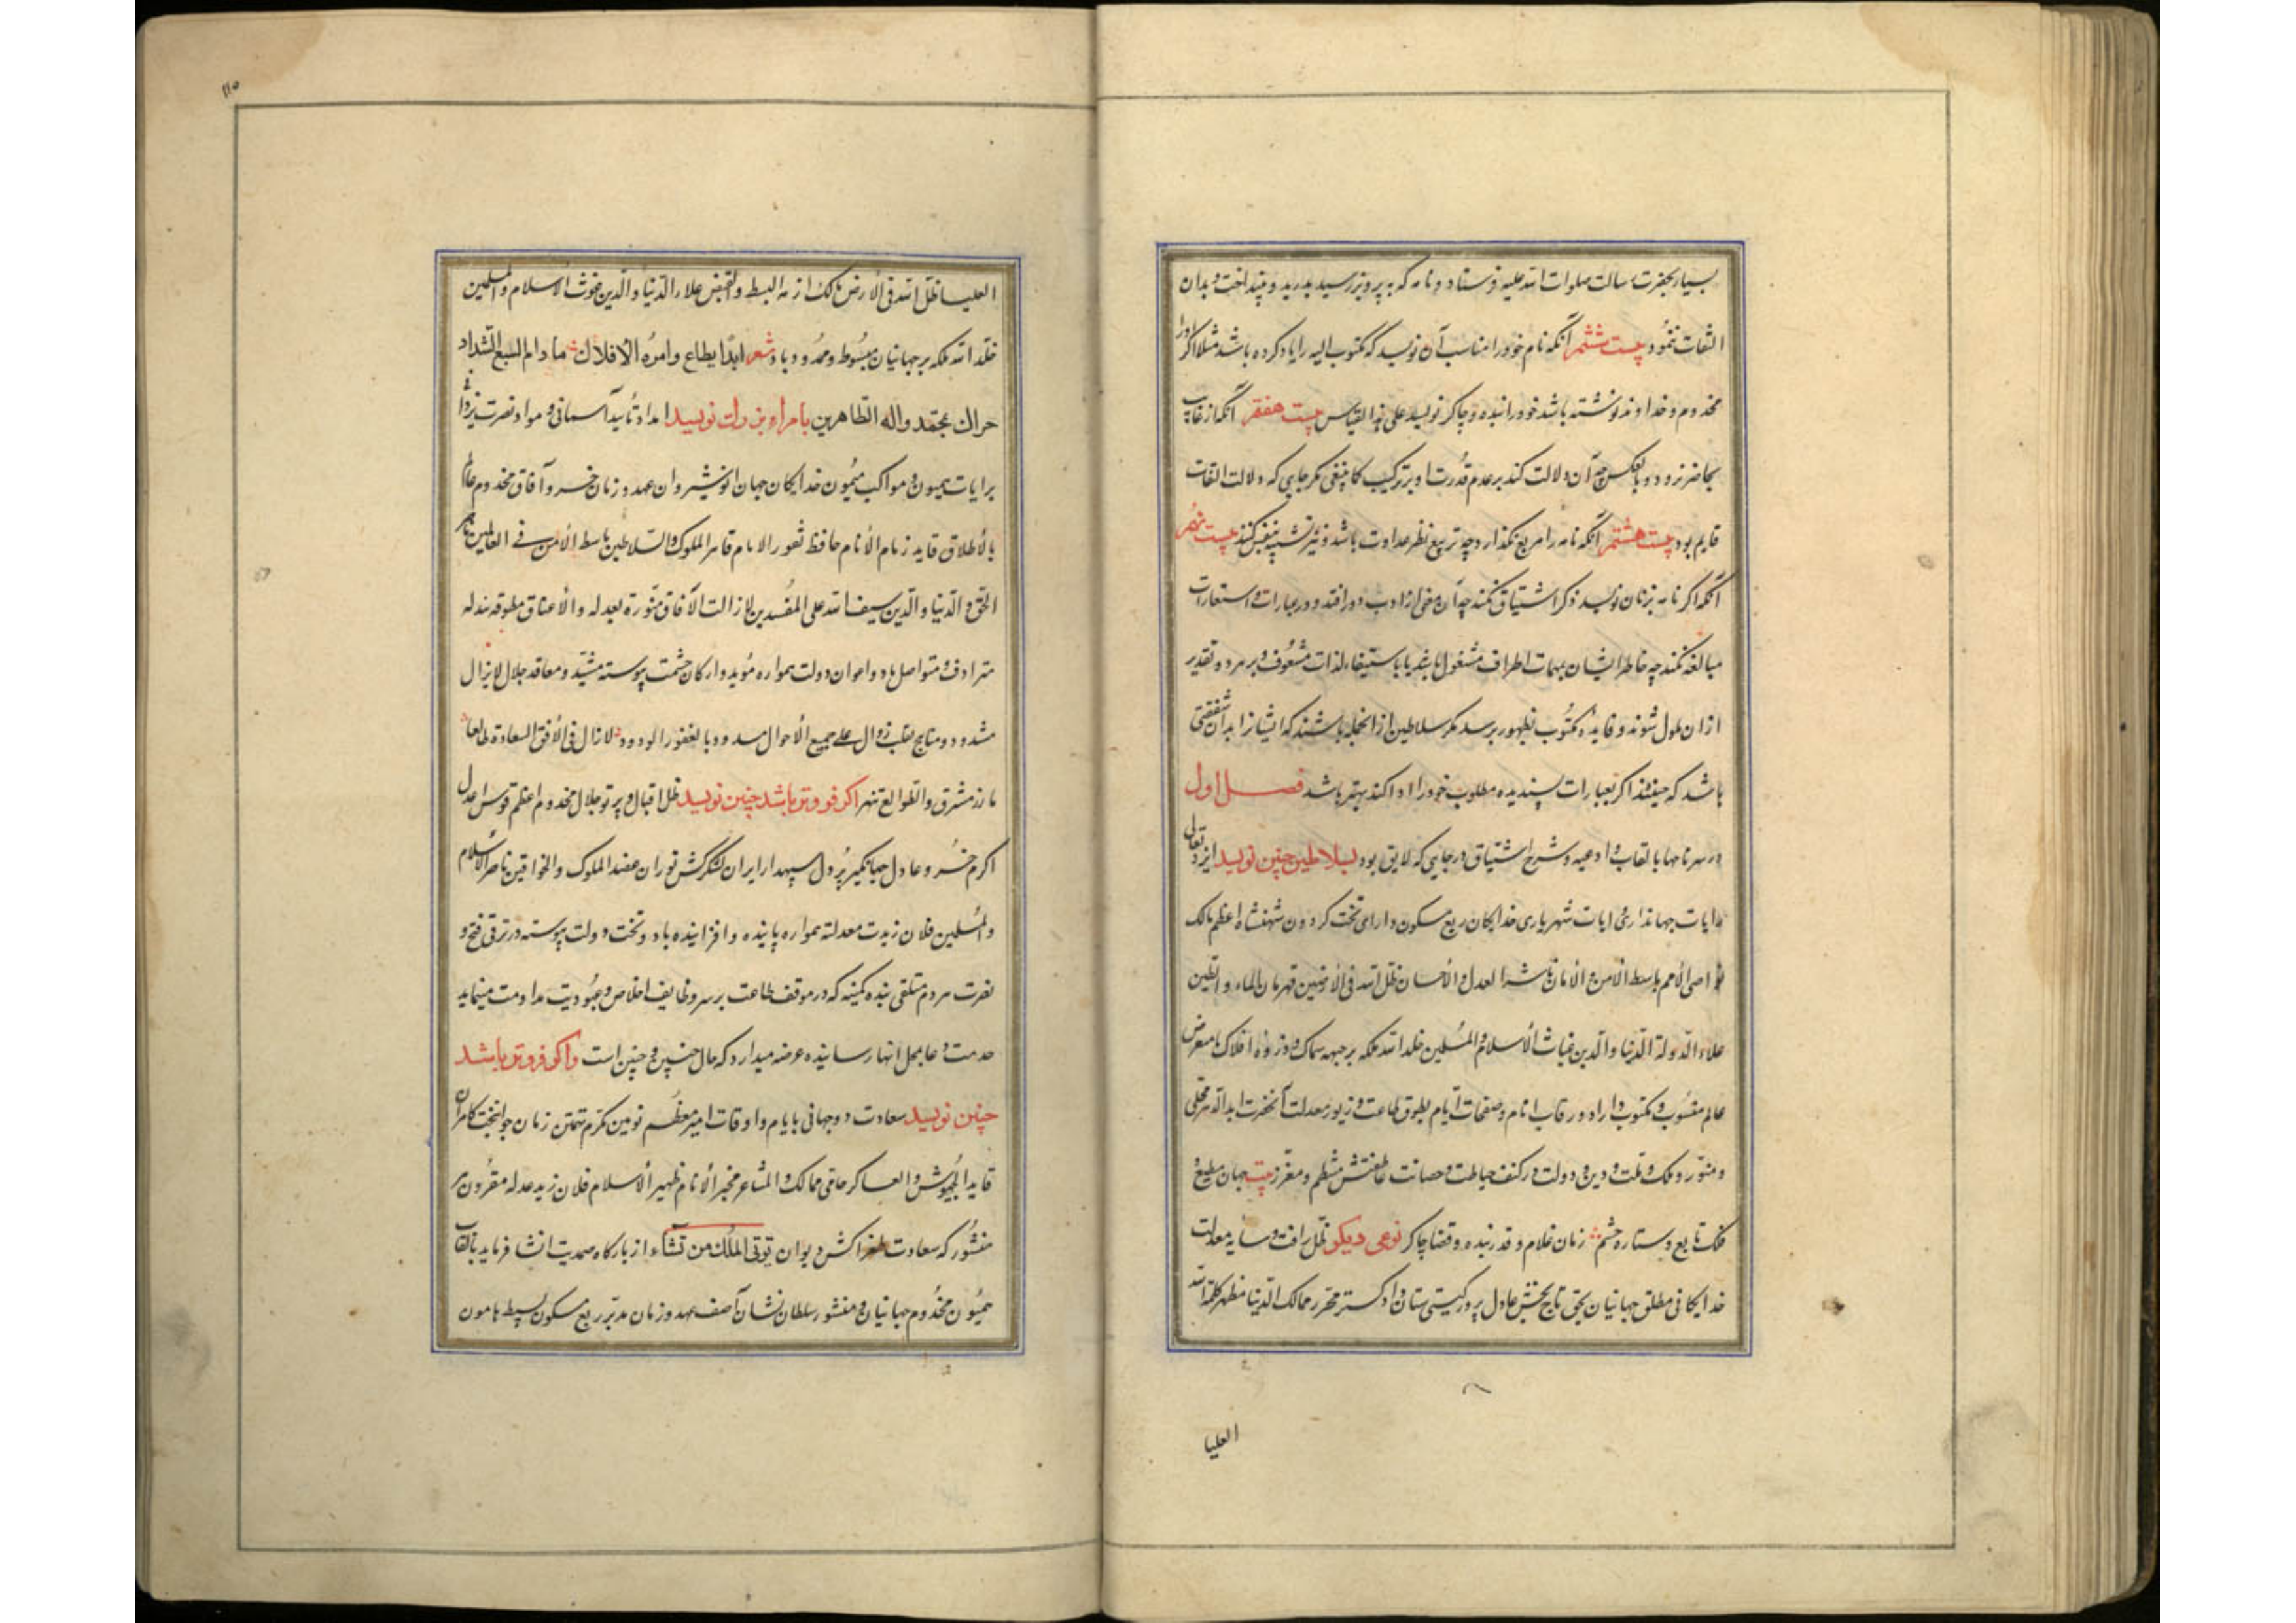 بسیار بحضرت رسالت صلوات الله علیه فرستاد و نامه که به پرویز رسید بدرید و بینداخت و بدان
التفات ننمود بیست ششم آنکه نام خود را مناسب آن نویسد که مکتوب الیه را یاد کرده باشد مثلا اگر او را
مخدوم و خداوند نوشته باشد خود را بنده و چاکر نویسد علی هذا القیاس بیست هفتم آنکه از غایب
بحاضر نرود و بالعکس چه آن دلالت کند بر عدم قدرت او بر ترکیب کما ینبغی مگر جایی که دلالت التفات
قایم بود بیست هشتم آنکه نامه را مربع نگذارد چه تربیع نظر عداوت باشد بیست نهم
آنکه اگر نامه بزنان نویسد ذکر اشتیاق نکند چه آن معنی از ادب دور افتد و در عبارات و استعارات
مبالغه نکند چه خاطر ایشان بمهمات اطراف مشغول باشد یا باستیفاء لذات مشعوف و بر هر دو تقدیر
از ان ملول شوند و فایده مکتوب بظهور نرسد مگر سلاطین از انجمله باشند که ایشان را بدان شفقتی
باشد که حینئذ اگر بعبارات پسندیده مطلوب خود را ادا کند بهتر باشد فصل اول
در سرنامها بالقاب و ادعیه و شرح اشتیاق در جایی که لایق بود بسلاطین چنین نویسد ایزد تعالی
رایات جهانداری و ایات شهریاری خدایگان ربع مسکون دارای تخت گردون شهنشاه اعظم مالک
نواصی الامم باسط الامن و الامان ناشر العدل و الاحسان ظل الله فی الارضین قهرمان الماء و الطین
علاء الدولة الدنیا و الدین غیاث الاسلام و المسلمین خلد الله ملکه بر جبهه سماک و ذروه افلاک بامعرض
عالم منسوب و مکتوب داراد و رقاب انام و صفحات ایام بطوق طاعت و زیور معدلت آنحضرت ابد الدهر محلی
و منور و ملک و ملت و دین و دولت در کنف حیاطت و حصانت عاطفتش منتظم و معزز بیت جهان مطیع و
فلک تابع و ستاره حشم زمان غلام و قدر بنده و قضا چاکر نوعی دیگر ظل رافت و سایه معدلت
خدایگانی مطلق جهانیان بحق تاج بخش عادل پرور گیتی ستان داد گستر محرر ممالک الدنیا مظهر کلمة الله
العلیا
العلیا ظل الله فی الارض مالک ازمه البسط و القبض علاء الدنیا و الدین غوث الاسلام و المسلمین
خلد الله ملکه بر جهانیان مبسوط و ممدود باد شعر ابدا یطاع و امره الافلاک ما دام السبع الشداد
حراک بمحمد و اله الطاهرین بامراء بزرگ نویسد امداد تأیید آسمانی و مواد نصرت یزدانی
برایات همیون و مواکب میمون خدایگان جهان انوشیروان عهد و زمان خسرو آفاق مخدوم عالم
بالاطلاق قاید زمام الانام حافظ ثغور الاسلام قاهر الملوک و السلاطین باسط الامن فی العالمین ناصر
الحق و الدنیا و الدین سیف الله علی المفسدین لا زالت الآفاق منورة بعدله و الاعناق مطوقه ببذله
مترادف و متواصل باد و اعوان دولت همواره مؤید و ارکان حشمت پیوسته مشید و معاقد جلال لایزال
مشدود و مناهج لقلب زوال علی جمیع الاحوال مسدود بالغفور الودود لا زال فی الافق السعادة طالعا
ما ذر مشرق و الطوالع تنهر اگر فروتر باشد چنین نویسد ظل اقبال و پرتو جلال مخدوم اعظم قوس اعدل
اکرم خسرو عادل جهانگیر پردل سپهدار ایران لشکرکش توران عضد الملوک و الخواقین ناصر الاسلام
و المسلمین فلان زیدت معدلته همواره پاینده و افزاینده باد و تخت دولت پیوسته در ترقی فتح و
نصرت مردم متلقی بنده کمینه که در موقف طاعت بر سر وظایف اخلاص و عبودیت مداومت مینماید
خدمت و دعا بمحل انها رسانیده عرضه میدارد که حال چنین و چنین است و اگر فروتر باشد
چنین نویسد سعادت دوجهانی بایام و اوقات امیر معظم نوین مکرم تهمتن زمان جوانبخت کامران
قاید الجیوش و العساکر حامی ممالک و المشاعر مخیر الانام ظهیر الاسلام فلان زید عدله مقرون بر
منشور که سعادت طغراکش دیوان توتی الملک من تشاء از بارگاه صمدیت انشا فرماید بالقاب
همیون مخدوم جهانیان و منشور سلطان نشان آصف عهد و زمان مدبر ربع مسکون بسیط هامون